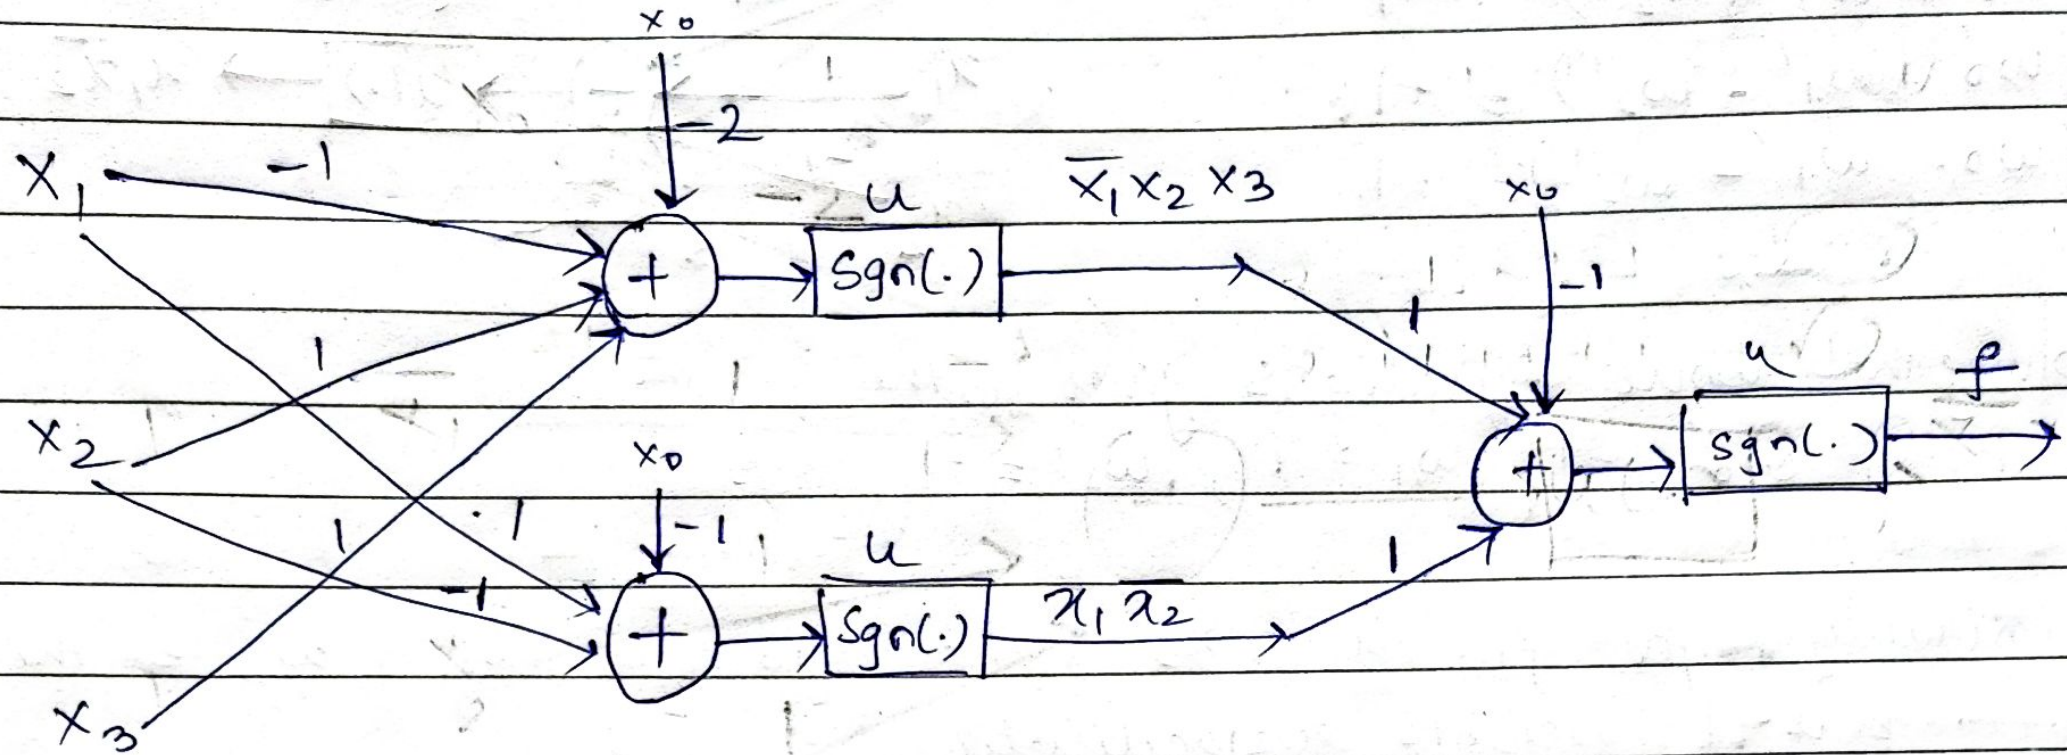 x₀
-2
X₁ -1
u x̄₁ x₂ x₃ x₀
+ Sgn(.) -1
1 1
u f
x₂ x₀ + sgn(.)
1 -1 -1 1 u 1
+ Sgn(.) x₁ x̄₂
x₃